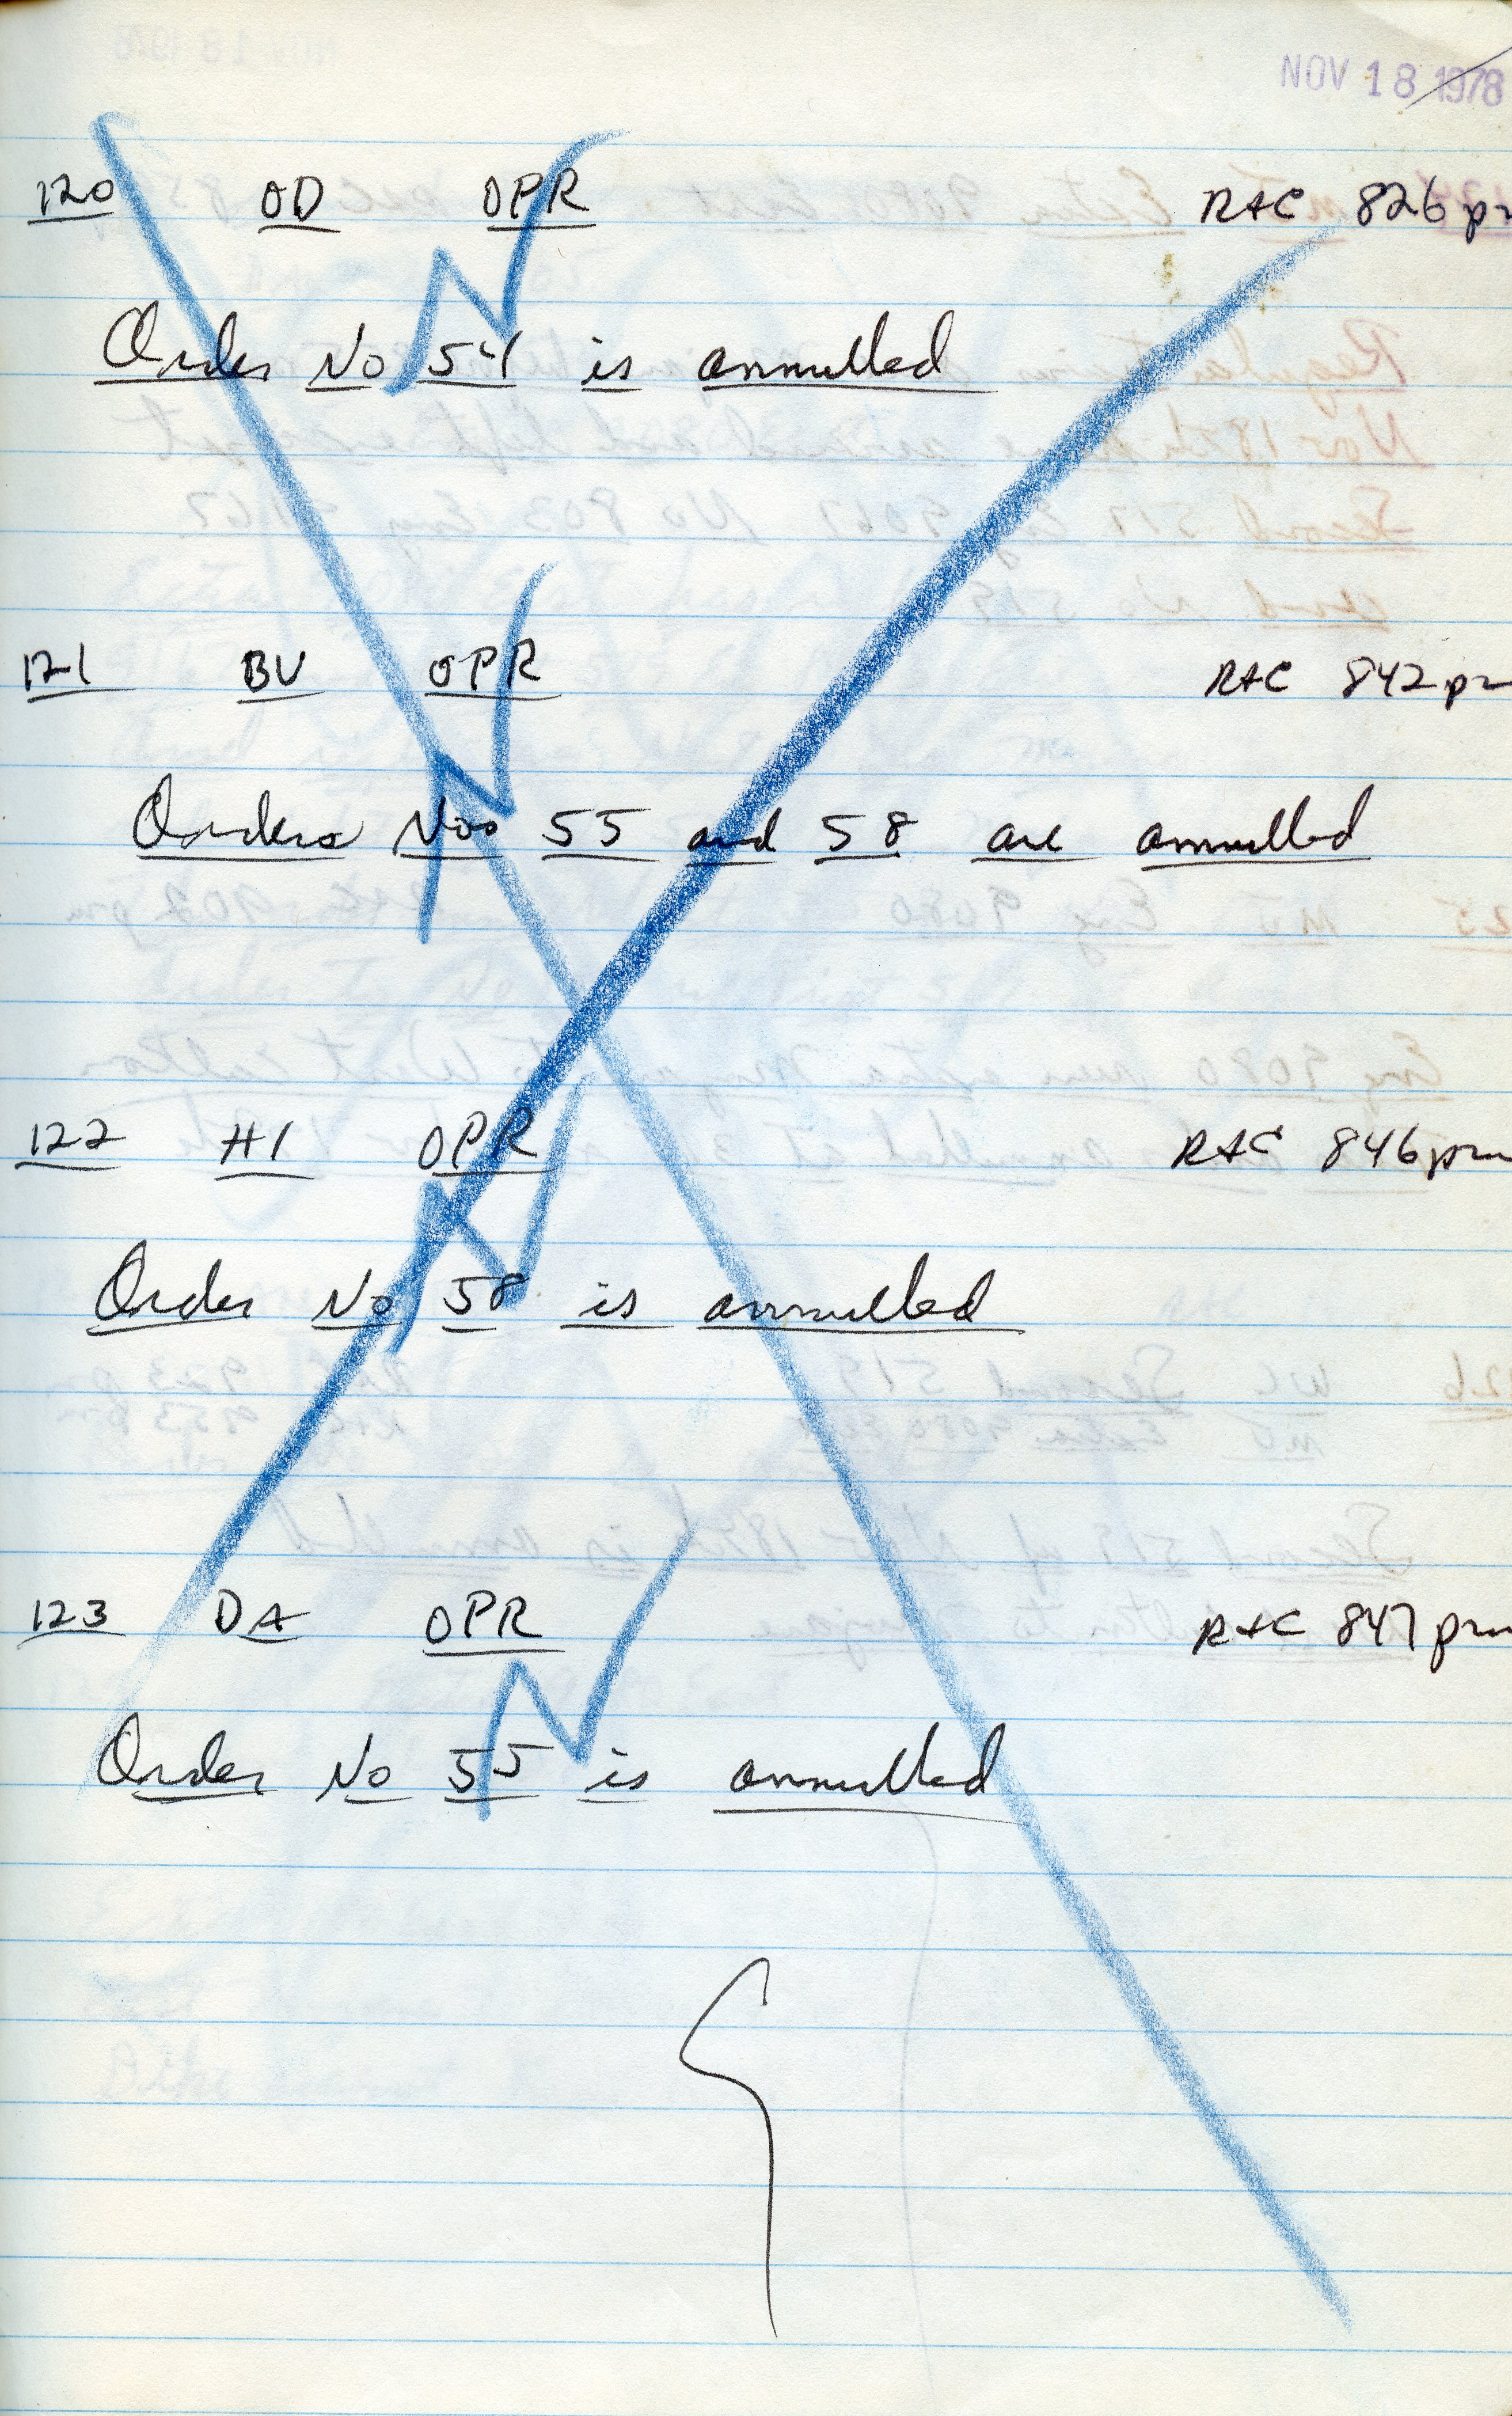 NOV 18 1978
120 OD OPR RAC 826 pm
Order No 54 is annulled
121 BV OPR RAC 842 pm
Orders Nos 55 and 58 are annulled
122 HI OPR RAC 846 pm
Order No 58 is annulled
123 DA OPR RAC 847 pm
Order No 55 is annulled